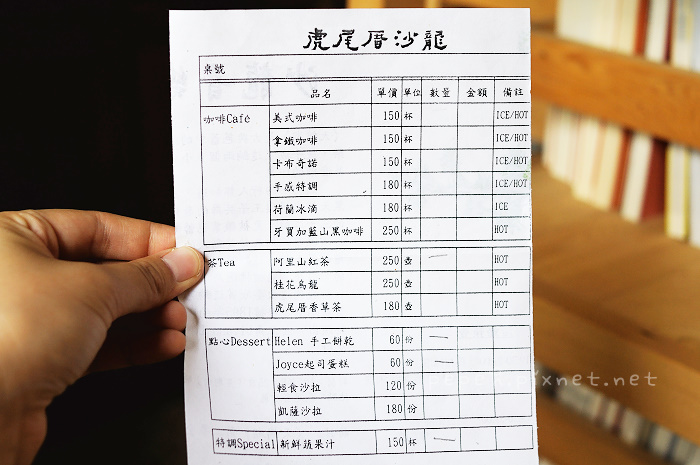 虎尾厝沙龍
桌號
品名 單價 單位 數量 金額 備註
咖啡Café 美式咖啡 150 杯 ICE/HOT
拿鐵咖啡 150 杯 ICE/HOT
卡布奇諾 150 杯 ICE/HOT
手感特調 180 杯 ICE/HOT
荷蘭冰滴 180 杯 ICE
牙買加藍山黑咖啡 250 杯 HOT
茶Tea 阿里山紅茶 250 壺 一 HOT
桂花烏龍 250 壺 HOT
虎尾厝香草茶 180 壺 HOT
點心Dessert Helen 手工餅乾 60 份 一
Joyce起司蛋糕 60 份 一
輕食沙拉 120 份
凱薩沙拉 180 份
特調Special 新鮮蔬果汁 150 杯 一